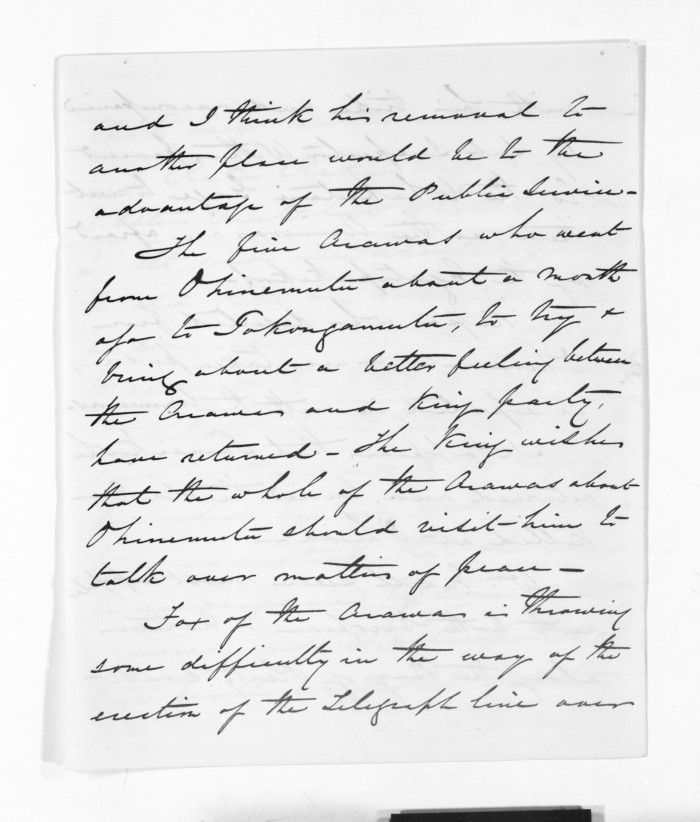 and I think his removal to
another place would be to the
advantage of the Public Service -
The five Arawas who went
from Ohinemutu about a month
ago to Tokangamutu, to try &
bring about a better feeling between
the Arawas and King party,
have returned - The King wishes
that the whole of the Arawas about
Ohinemutu should visit him to
talk over matters of peace -
Fox of the Arawas is throwing
some difficulty in the way of the
erection of the Telegraph line over